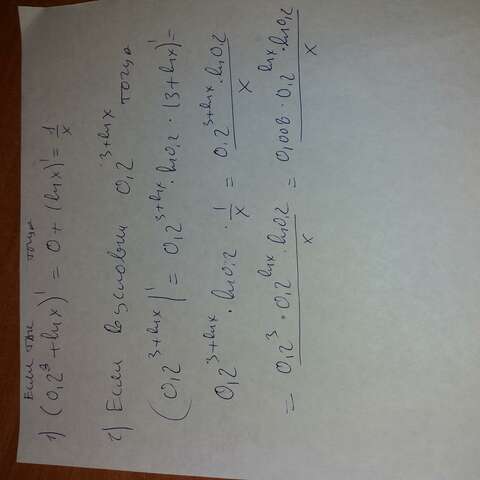 Если так тогда
1) (0,2³ + lnx)' = 0 + (lnx)' = 1/x
2) Если в условии 0,2^(3+lnx) тогда
(0,2^(3+lnx))' = 0,2^(3+lnx) · ln0,2 · (3+lnx)' =
0,2^(3+lnx) · ln0,2 · 1/x = 0,2^(3+lnx) · ln0,2 / x
= 0,2³ · 0,2^(lnx) · ln0,2 / x = 0,008 · 0,2^(lnx) · ln0,2 / x